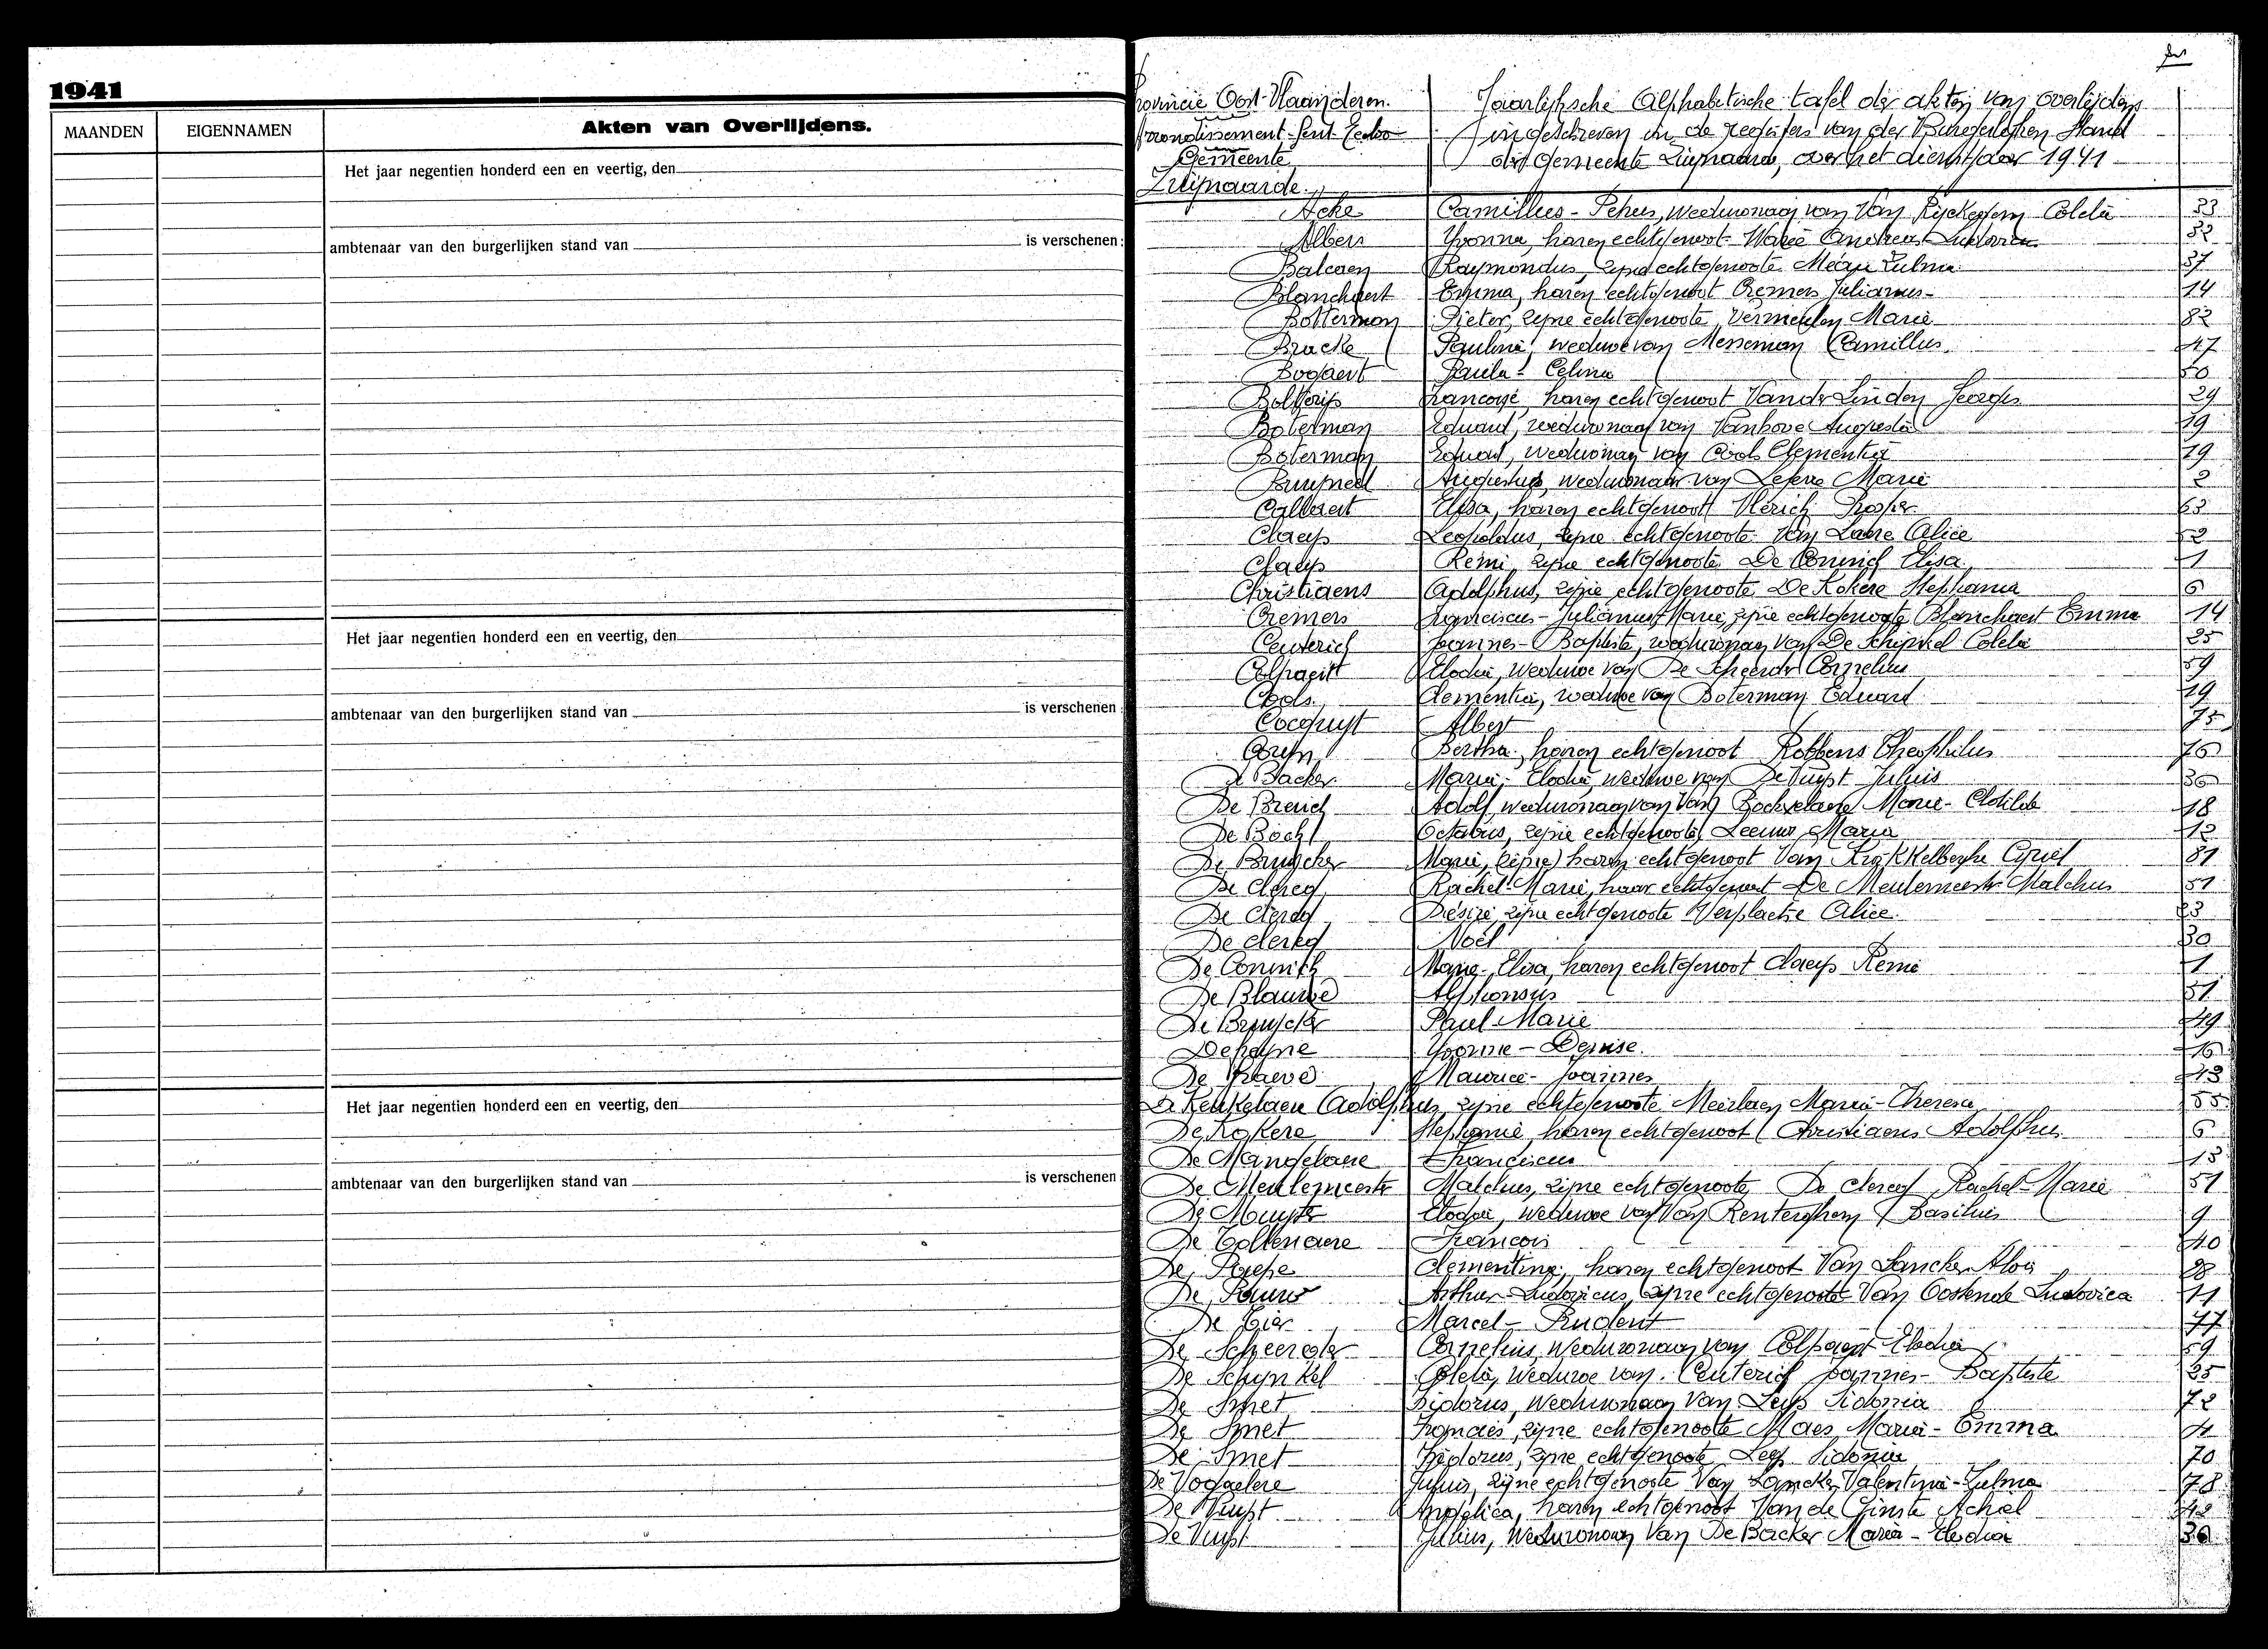 1941
MAANDEN EIGENNAMEN Akten van Overlijdens.
Het jaar negentien honderd een en veertig, den
ambtenaar van den burgerlijken stand van is verschenen:
Het jaar negentien honderd een en veertig, den
ambtenaar van den burgerlijken stand van is verschenen
Het jaar negentien honderd een en veertig, den
ambtenaar van den burgerlijken stand van is verschenen
Provincie Oost-Vlaanderen.
Arrondissement-Gent-Eecloo
Gemeente
Zwijnaarde.
Jaarlijksche Alphabetische tafel der akten van overlijdens
ingeschreven in de registers van der Burgerlijken Stand
der Gemeente Zwijnaarde, over het dienstjaar 1941
Acke Camillus-Petrus, weduwnaar van Van Coleta 33
Albers Yvonna, haren echtgenoot 32
Balcaen Raymondus, zijne echtgenoote Zulma 37
Blanchaert Emma, haren echtgenoot Cremers Julianus 14
Botterman Pieter, zijne echtgenoote Vermeulen Marie 82
Bracke Paulina, weduwe van Meneman Camillus 47
Bogaert Paula-Celina
haren echtgenoot Van der Linden Georges 29
Boterman Eduard, weduwnaar van Vanhove Augusta 19
Boterman Eduard, weduwnaar van Cools Clementia 19
Augustus, weduwnaar van Lefere Marie 2
Callaert Elisa, haren echtgenoot Prosper 63
Claeys Leopoldus, zijne echtgenoote Van Laere Alice 52
Claeys Remi, zijne echtgenoote De Connick Elisa 1
Christiaens Adolphus, zijne echtgenoote De Kokere Stephania 6
Cremers Franciscus-Julianus-Marie, zijne echtgenoote Blanchaert Emma 14
Ceuterick Joannes-Baptiste, weduwnaar van De Schijnkel Coleta 25
Colpaert Elodia, weduwe van De Scheerder Cornelius 59
Cools Clementia, weduwe van Boterman Eduard 19
Cocquyt Albert 75
Bertha, haren echtgenoot Robbens Theophilus 76
De Backer Maria-Elodia, weduwe van De Vuyst Julius 36
Adolf, weduwnaar van Van Marie-Clotilde 18
De Bock Octavus, zijne echtgenoote Leeuw Maria 12
De Bruycker Marie, (zijne) haren echtgenoot Van Cyriel 81
De Clercq Rachel-Marie, haar echtgenoot De Meulemeester Malchus 51
De Clercq Désiré, zijne echtgenoote Verplaetse Alice
De Clercq Noël 30
De Connick Marie-Elisa, haren echtgenoot Claeys Remi 1
De Blauwe Alphonsus 31
De Bruycker Paul-Marie 49
Yvonne-Denise 16
Maurice-Joannes
De Keukelaere Adolphus, zijne echtgenoote Maria-Theresia 55
De Kokere Stephanie, haren echtgenoot Christiaens Adolphus 6
De Mangelaere Franciscus 13
De Meulemeester Malchus, zijne echtgenoote De Clercq Rachel-Marie 51
De Muynck Elodie, weduwe van Van Renterghem Basilius 9
De Coltenaere François 40
De Paepe Clementina, haren echtgenoot Van Lancker Aloïs
De Pauw Arthur-Ludovicus, zijne echtgenoote Van Oostende Ludovica 11
Marcel-Prudent 77
De Scheerder Cornelius, weduwnaar van Colpaert Elodia 59
De Schijnkel Coleta, weduwe van Ceuterick Joannes-Baptiste 25
De Smet Isidorus, weduwnaar van Leys Sidonia 72
De Smet Francies, zijne echtgenoote Maes Maria-Emma 4
De Smet Isidorus, zijne echtgenoote Leys Sidonia 70
De Vogelaere Julius, zijne echtgenoote Van Lancker Valentina-Zulma 78
De Vuyst Angelica, haren echtgenoot Van de Ginste Achiel 42
De Vuyst Julius, weduwnaar van De Backer Maria-Elodia 36